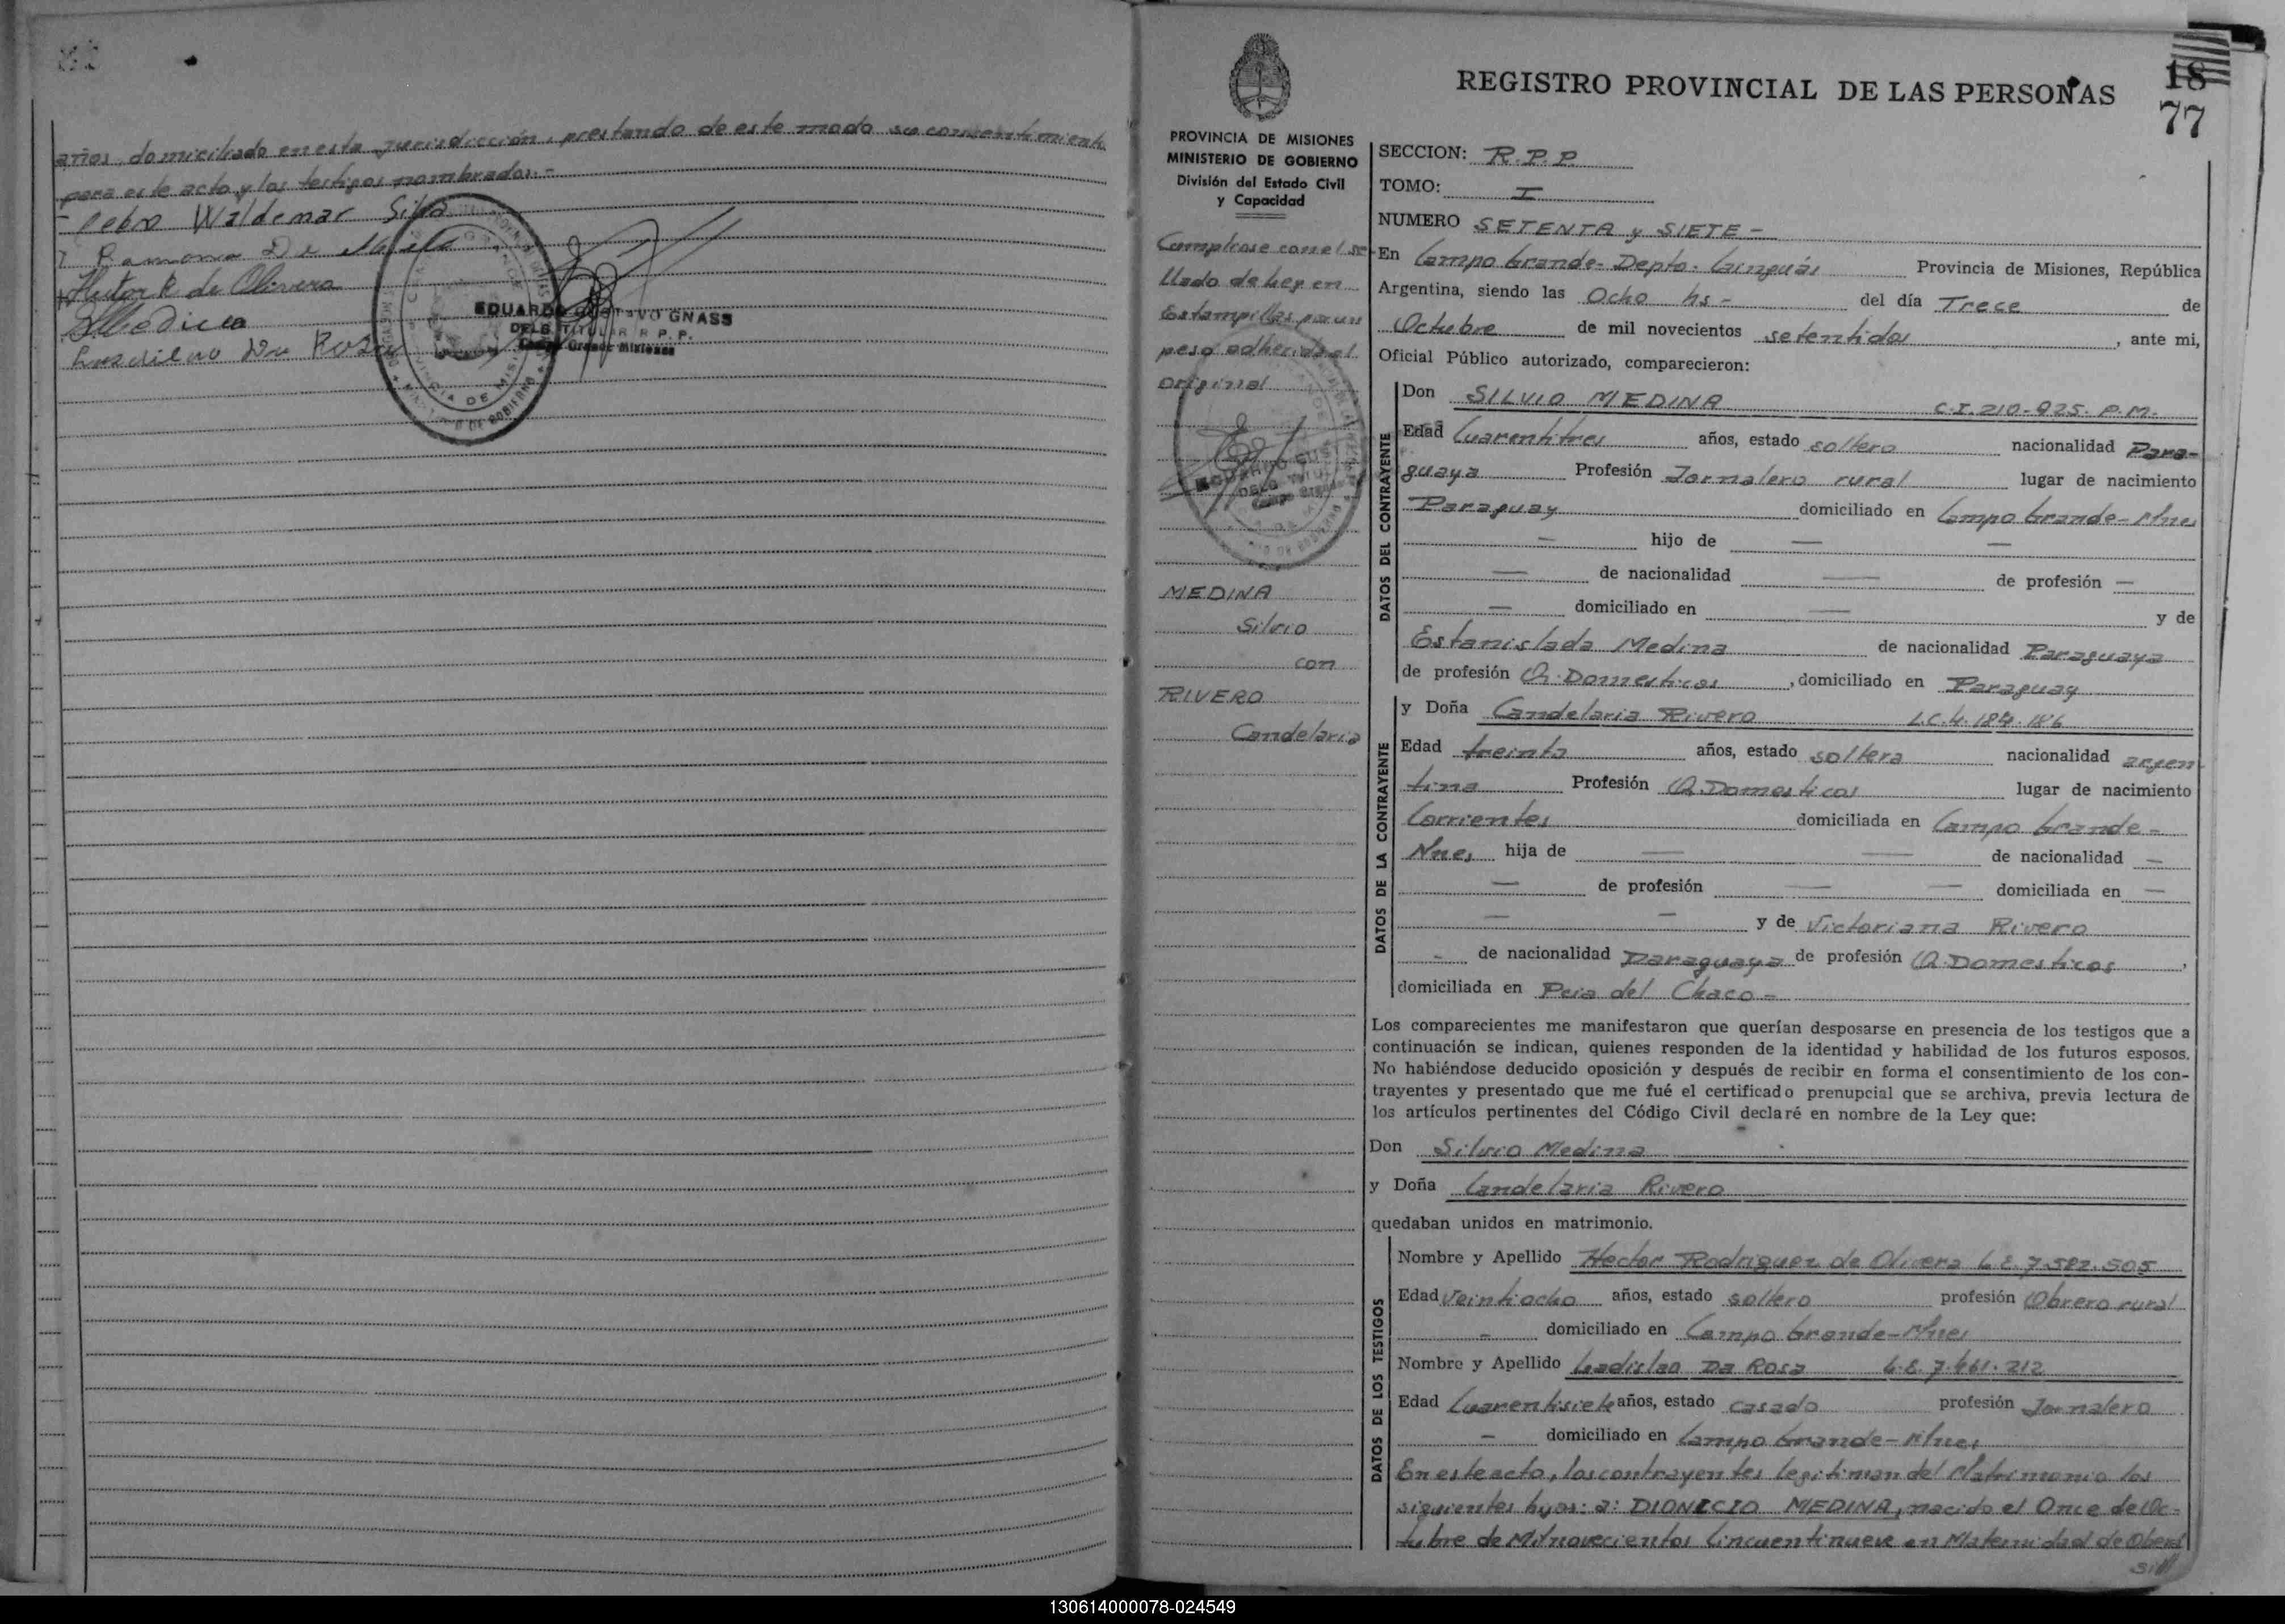 años, domiciliado en esta jurisdicción, prestando de este modo su consentimient
para este acto y los testigos nombrados.-
Pedro Waldemar Silva
Ramona De
Hector R de Olivera
Ladislao Da Rosa
EDUARDO GUSTAVO GNASS
DELEG. TITULAR R. P. P.
Campo Grande Misiones
PROVINCIA DE MISIONES
MINISTERIO DE GOBIERNO
División del Estado Civil
y Capacidad
Cumplease con el se-
llado de Ley en
Estampillas por un
peso adherida al
original
MEDINA
Silvio
con
RIVERO
Candelaria
REGISTRO PROVINCIAL DE LAS PERSONAS
18
77
SECCION: R.P.P.
TOMO: I
NUMERO SETENTA y SIETE -
En Campo Grande- Depto. Cainguás Provincia de Misiones, República
Argentina, siendo las Ocho hs - del día Trece de
Octubre de mil novecientos setentidos, ante mi,
Oficial Público autorizado, comparecieron:
DATOS DEL CONTRAYENTE
Don SILVIO MEDINA C.I. 210.925. P.M.
Edad Cuarentitres años, estado soltero nacionalidad Para-
guaya Profesión Jornalero rural lugar de nacimiento
Paraguay domiciliado en Campo Grande-Mnes
- hijo de - -
- de nacionalidad - de profesión -
- domiciliado en - y de
Estanislada Medina de nacionalidad Paraguaya
de profesión Q. Domesticos, domiciliado en Paraguay
DATOS DE LA CONTRAYENTE
y Doña Candelaria Rivero L.C. 4.184.186
Edad treinta años, estado soltera nacionalidad argen
tina Profesión Q. Domesticos lugar de nacimiento
Corrientes domiciliada en Campo Grande-
Mnes hija de - - de nacionalidad -
- de profesión - - domiciliada en -
- - y de Victoriana Rivero
- de nacionalidad Paraguaya de profesión Q. Domesticos,
domiciliada en Pcia del Chaco-
Los comparecientes me manifestaron que querían desposarse en presencia de los testigos que a
continuación se indican, quienes responden de la identidad y habilidad de los futuros esposos.
No habiéndose deducido oposición y después de recibir en forma el consentimiento de los con-
trayentes y presentado que me fué el certificado prenupcial que se archiva, previa lectura de
los artículos pertinentes del Código Civil declaré en nombre de la Ley que:
Don Silvio Medina
y Doña Candelaria Rivero
quedaban unidos en matrimonio.
DATOS DE LOS TESTIGOS
Nombre y Apellido Hector Rodriguez de Olivera L.E. 7.582.505
Edad Veintiocho años, estado soltero profesión Obrero rural
- domiciliado en Campo Grande-Mnes
Nombre y Apellido Ladislao Da Rosa L.E. 7.461.212
Edad Cuarentisiete años, estado casado profesión Jornalero
- domiciliado en Campo Grande-Mnes
En este acto, los contrayentes legitiman del Matrimonio los
siguientes hijos: a: DIONICIO MEDINA, nacido el Once de Oc-
tubre de Mil novecientos Cincuentinueve en Maternidad de Oberá
130614000078-024549